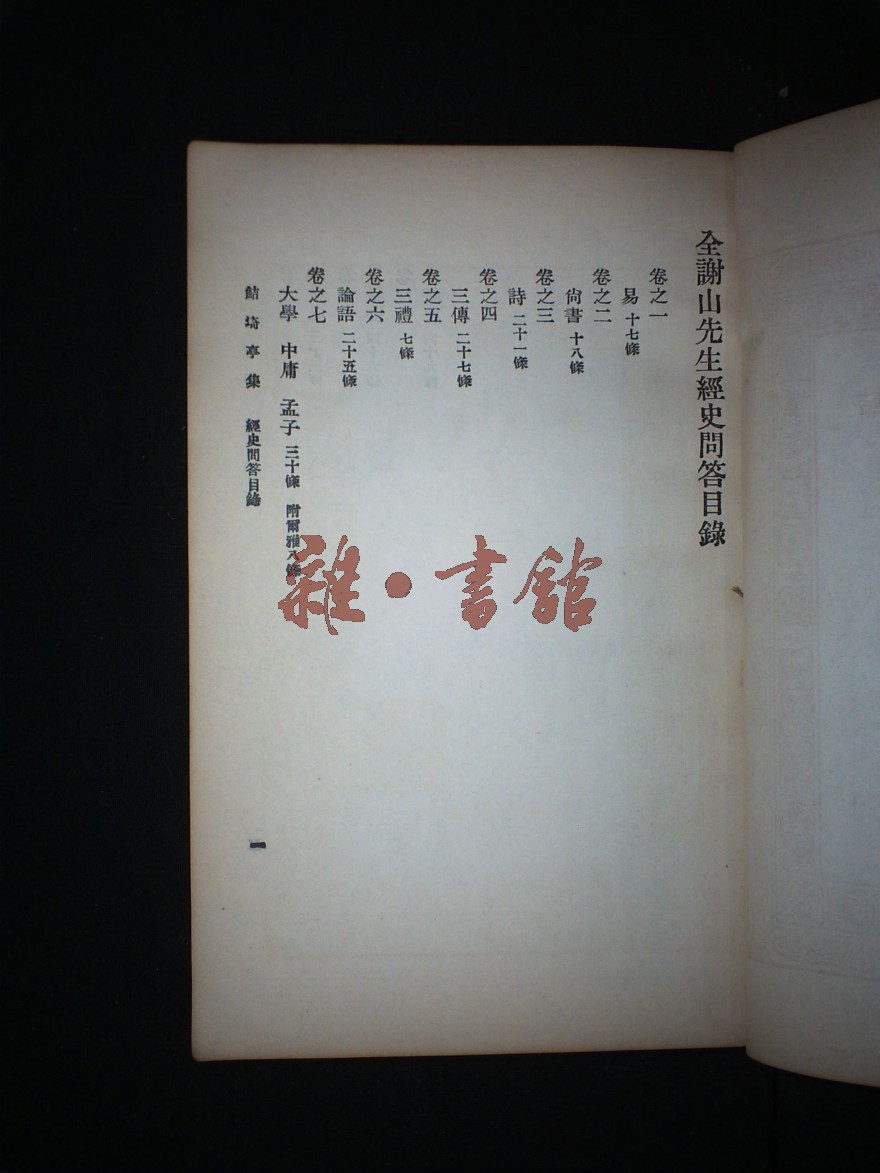 全謝山先生經史問答目錄
卷之一
易 十七條
卷之二
尙書 十八條
卷之三
詩 二十一條
卷之四
三傳 二十七條
卷之五
三禮 七條
卷之六
論語 二十五條
卷之七
大學 中庸 孟子 三十條 附爾雅八條
鮚埼亭集 經史問答目錄
一
雜·書館